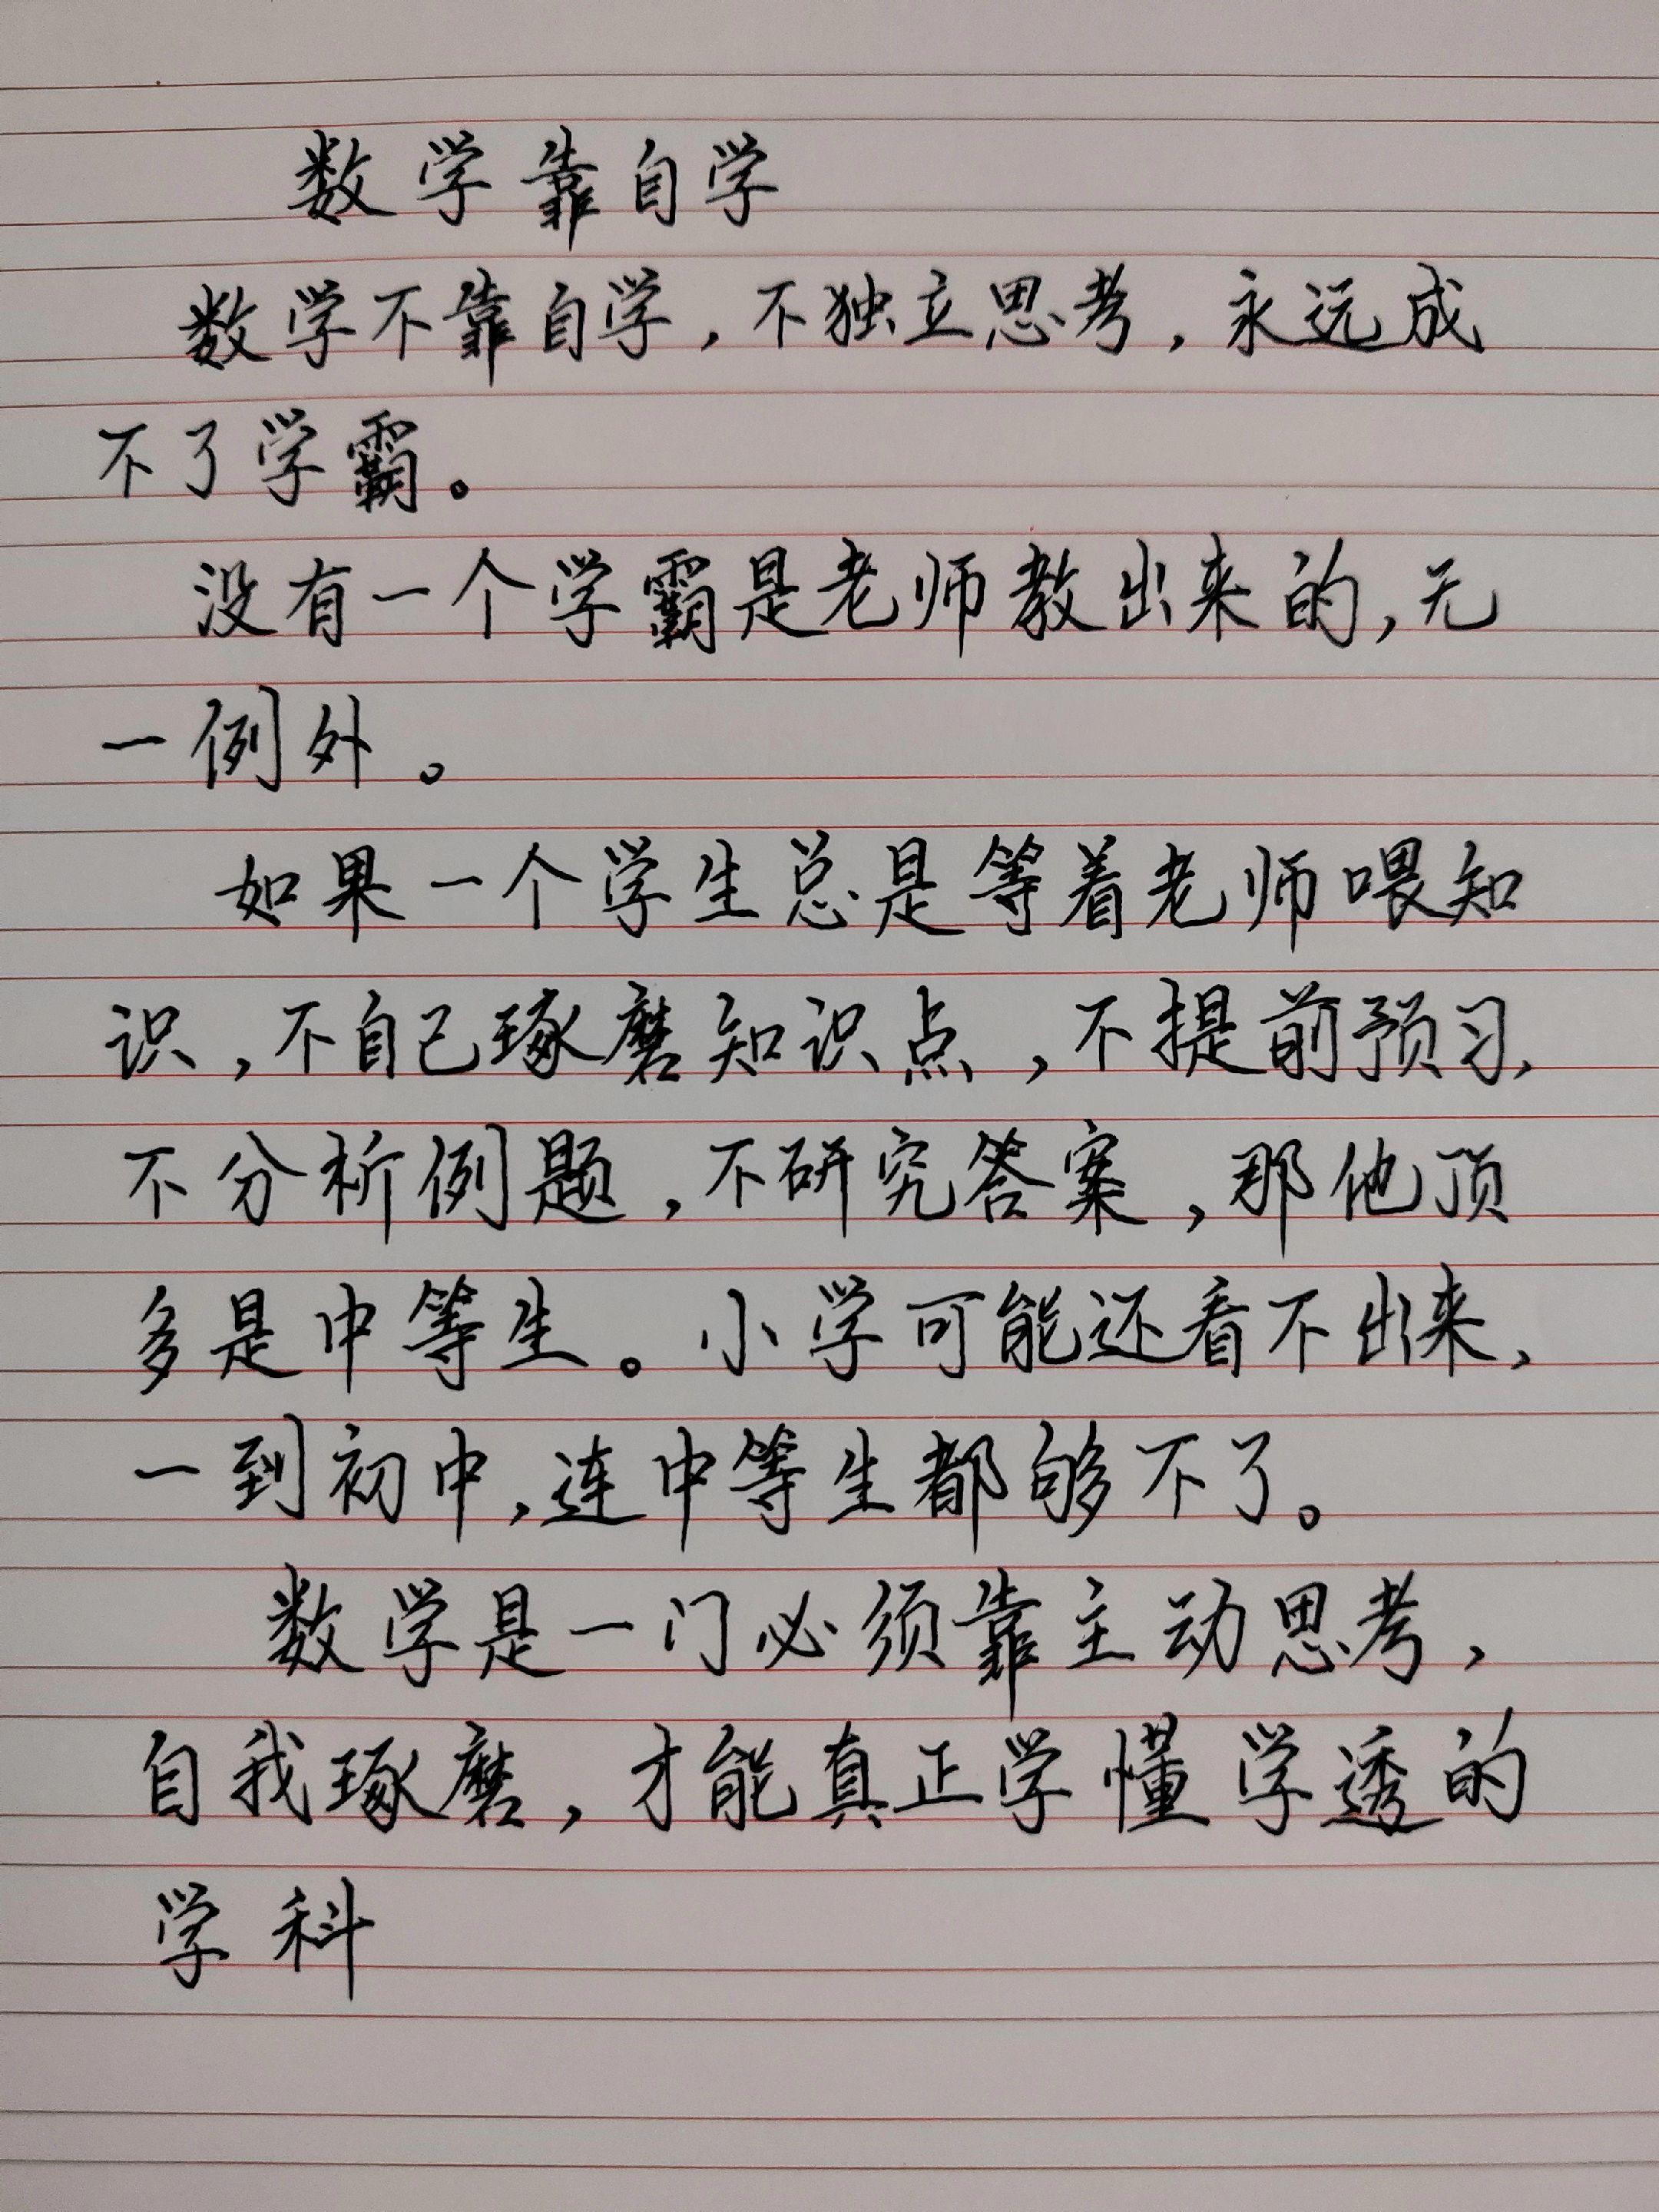 数学靠自学
数学不靠自学，不独立思考，永远成
不了学霸。
没有一个学霸是老师教出来的，无
一例外。
如果一个学生总是等着老师喂知
识，不自己琢磨知识点，不提前预习，
不分析例题，不研究答案，那他顶
多是中等生。小学可能还看不出来，
一到初中，连中等生都够不了。
数学是一门必须靠主动思考，
自我琢磨，才能真正学懂学透的
学科